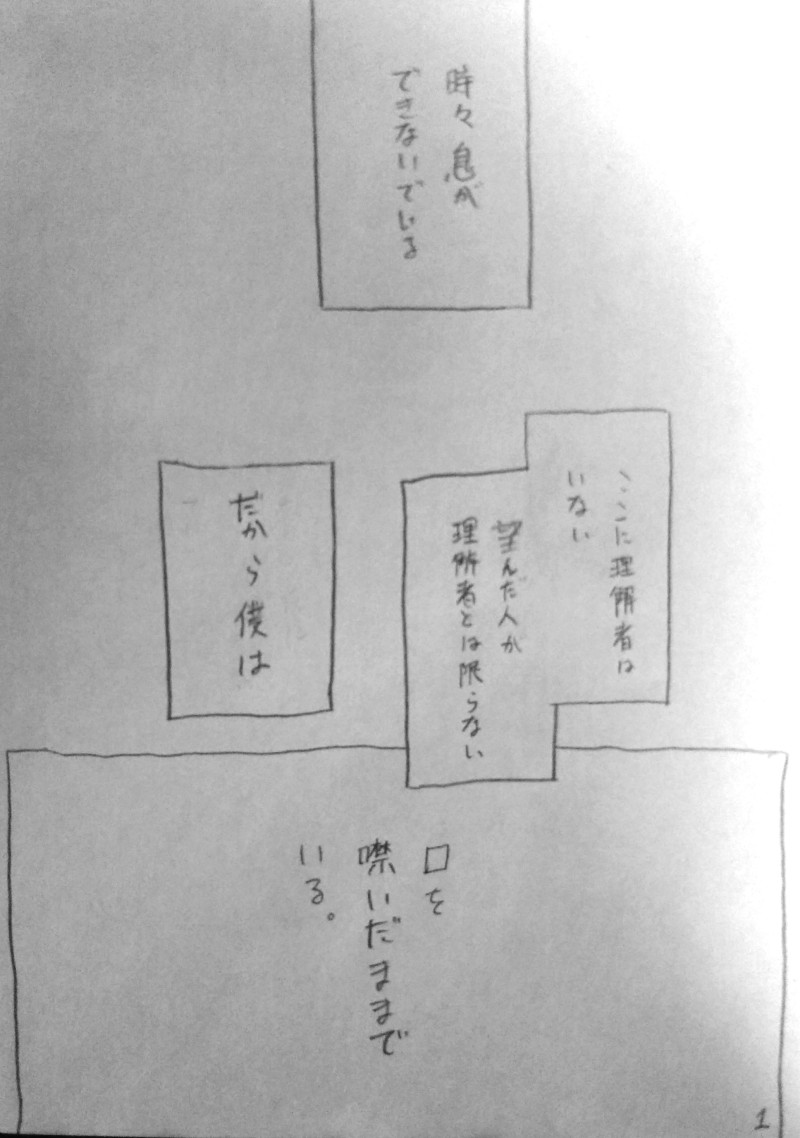 時々息が
できないでいる
ここに理解者は
いない
望んだ人が
理解者とは限らない
だから僕は
口を
噤いだままで
いる。
1